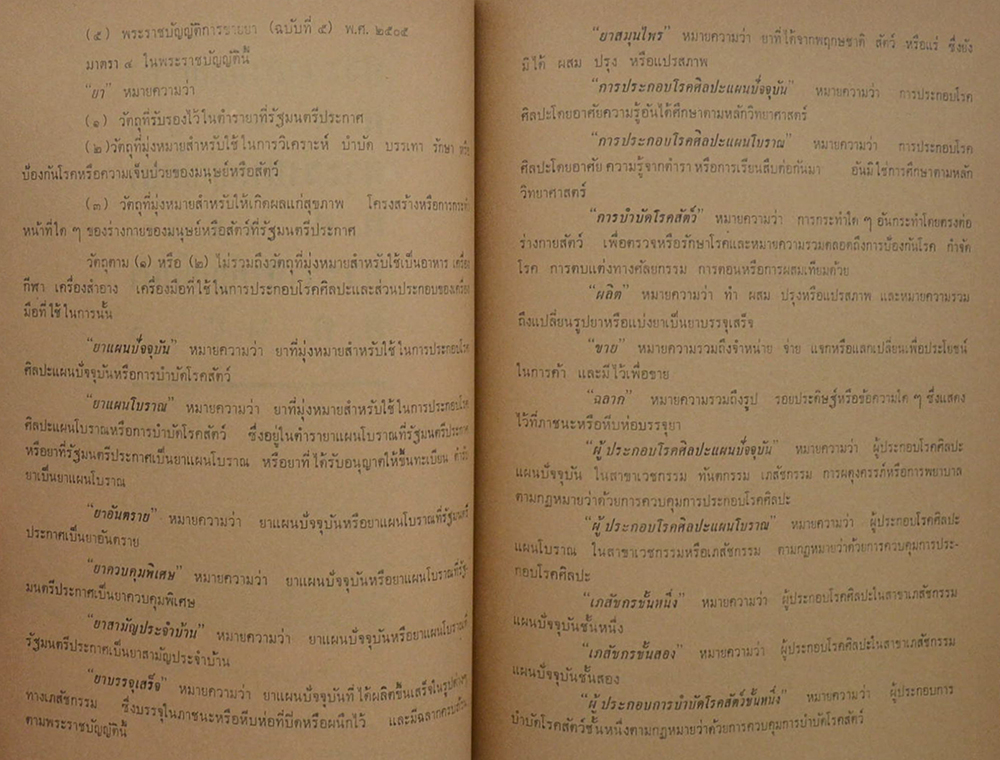 (๕) พระราชบัญญัติการขายยา (ฉบับที่ ๕) พ.ศ. ๒๕๐๕
มาตรา ๔ ในพระราชบัญญัตินี้
“ยา” หมายความว่า
(๑) วัตถุที่รับรองไว้ในตำรายาที่รัฐมนตรีประกาศ
(๒) วัตถุที่มุ่งหมายสำหรับใช้ในการวิเคราะห์ บำบัด บรรเทา รักษา หรือ
ป้องกันโรคหรือความเจ็บป่วยของมนุษย์หรือสัตว์
(๓) วัตถุที่มุ่งหมายสำหรับให้เกิดผลแก่สุขภาพ โครงสร้างหรือการกระทำ
หน้าที่ใด ๆ ของร่างกายของมนุษย์หรือสัตว์ที่รัฐมนตรีประกาศ
วัตถุตาม (๑) หรือ (๒) ไม่รวมถึงวัตถุที่มุ่งหมายสำหรับใช้เป็นอาหาร เครื่อง
กีฬา เครื่องสำอาง เครื่องมือที่ใช้ในการประกอบโรคศิลปะและส่วนประกอบของเครื่อง
มือที่ใช้ในการนั้น
“ยาแผนปัจจุบัน” หมายความว่า ยาที่มุ่งหมายสำหรับใช้ในการประกอบโรค
ศิลปะแผนปัจจุบันหรือการบำบัดโรคสัตว์
“ยาแผนโบราณ” หมายความว่า ยาที่มุ่งหมายสำหรับใช้ในการประกอบโรค
ศิลปะแผนโบราณหรือการบำบัดโรคสัตว์ ซึ่งอยู่ในตำรายาแผนโบราณที่รัฐมนตรีประกาศ
หรือยาที่รัฐมนตรีประกาศเป็นยาแผนโบราณ หรือยาที่ได้รับอนุญาตให้ขึ้นทะเบียน ตำรับ
ยาเป็นยาแผนโบราณ
“ยาอันตราย” หมายความว่า ยาแผนปัจจุบันหรือยาแผนโบราณที่รัฐมนตรี
ประกาศเป็นยาอันตราย
“ยาควบคุมพิเศษ” หมายความว่า ยาแผนปัจจุบันหรือยาแผนโบราณที่รัฐ
มนตรีประกาศเป็นยาควบคุมพิเศษ
“ยาสามัญประจำบ้าน” หมายความว่า ยาแผนปัจจุบันหรือยาแผนโบราณที่
รัฐมนตรีประกาศเป็นยาสามัญประจำบ้าน
“ยาบรรจุเสร็จ” หมายความว่า ยาแผนปัจจุบันที่ได้ผลิตขึ้นเสร็จในรูปต่างๆ
ทางเภสัชกรรม ซึ่งบรรจุในภาชนะหรือหีบห่อที่ปิดหรือผนึกไว้ และมีฉลากครบถ้วน
ตามพระราชบัญญัตินี้
“ยาสมุนไพร” หมายความว่า ยาที่ได้จากพฤกษชาติ สัตว์ หรือแร่ ซึ่งยัง
มิได้ ผสม ปรุง หรือแปรสภาพ
“การประกอบโรคศิลปะแผนปัจจุบัน” หมายความว่า การประกอบโรค
ศิลปะโดยอาศัยความรู้อันได้ศึกษาตามหลักวิทยาศาสตร์
“การประกอบโรคศิลปะแผนโบราณ” หมายความว่า การประกอบโรค
ศิลปะโดยอาศัย ความรู้จากตำรา หรือการเรียนสืบต่อกันมา อันมิใช่การศึกษาตามหลัก
วิทยาศาสตร์
“การบำบัดโรคสัตว์” หมายความว่า การกระทำใด ๆ อันกระทำโดยตรงต่อ
ร่างกายสัตว์ เพื่อตรวจหรือรักษาโรคและหมายความรวมตลอดถึงการป้องกันโรค กำจัด
โรค การตบแต่งทางศัลยกรรม การตอนหรือการผสมเทียมด้วย
“ผลิต” หมายความว่า ทำ ผสม ปรุงหรือแปรสภาพ และหมายความรวม
ถึงเปลี่ยนรูปยาหรือแบ่งยาเป็นยาบรรจุเสร็จ
“ขาย” หมายความรวมถึงจำหน่าย จ่าย แจกหรือแลกเปลี่ยนเพื่อประโยชน์
ในการค้า และมีไว้เพื่อขาย
“ฉลาก” หมายความรวมถึงรูป รอยประดิษฐ์หรือข้อความใด ๆ ซึ่งแสดง
ไว้ที่ภาชนะหรือหีบห่อบรรจุยา
“ผู้ประกอบโรคศิลปะแผนปัจจุบัน” หมายความว่า ผู้ประกอบโรคศิลปะ
แผนปัจจุบัน ในสาขาเวชกรรม ทันตกรรม เภสัชกรรม การผดุงครรภ์หรือการพยาบาล
ตามกฎหมายว่าด้วยการควบคุมการประกอบโรคศิลปะ
“ผู้ประกอบโรคศิลปะแผนโบราณ” หมายความว่า ผู้ประกอบโรคศิลปะ
แผนโบราณ ในสาขาเวชกรรมหรือเภสัชกรรม ตามกฎหมายว่าด้วยการควบคุมการประ-
กอบโรคศิลปะ
“เภสัชกรชั้นหนึ่ง” หมายความว่า ผู้ประกอบโรคศิลปะในสาขาเภสัชกรรม
แผนปัจจุบันชั้นหนึ่ง
“เภสัชกรชั้นสอง” หมายความว่า ผู้ประกอบโรคศิลปะในสาขาเภสัชกรรม
แผนปัจจุบันชั้นสอง
“ผู้ประกอบการบำบัดโรคสัตว์ชั้นหนึ่ง” หมายความว่า ผู้ประกอบการ
บำบัดโรคสัตว์ชั้นหนึ่งตามกฎหมายว่าด้วยการควบคุมการบำบัดโรคสัตว์